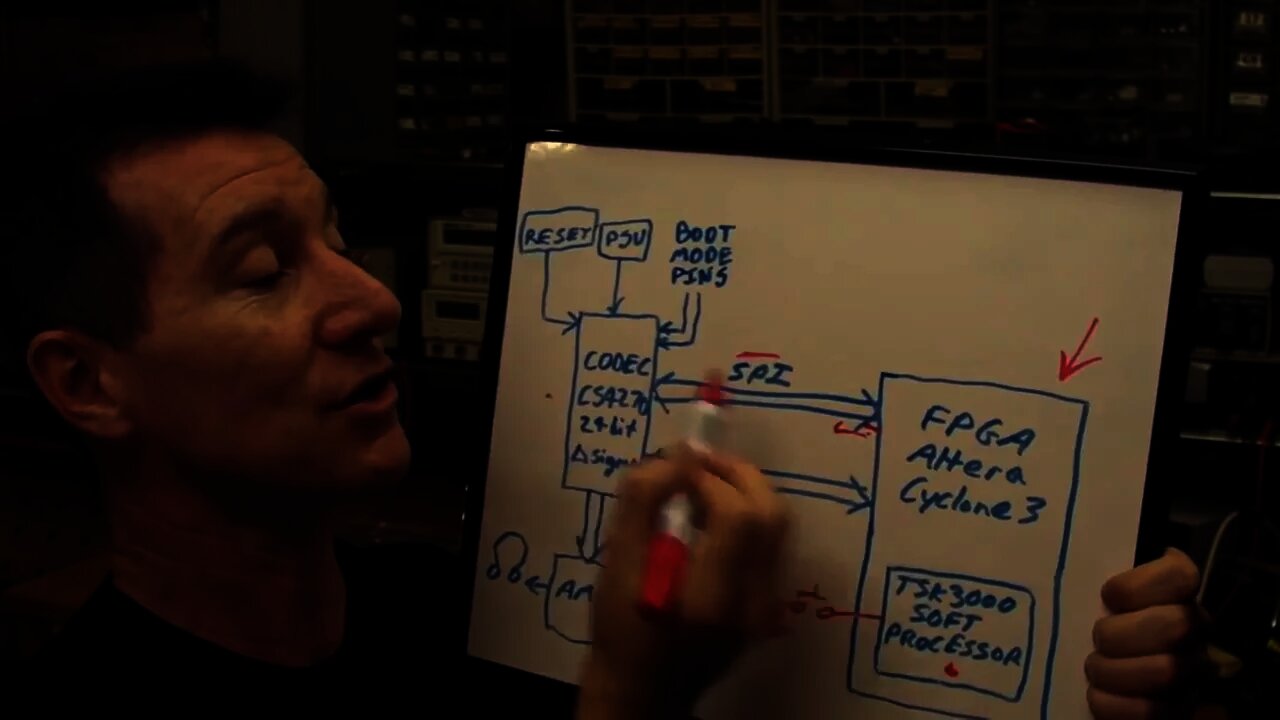 RESET
PSU
BOOT
MODE
PINS
CODEC
CS4270
24bit
SPI
FPGA
Altera
Cyclone 3
TSK3000
SOFT
PROCESSOR